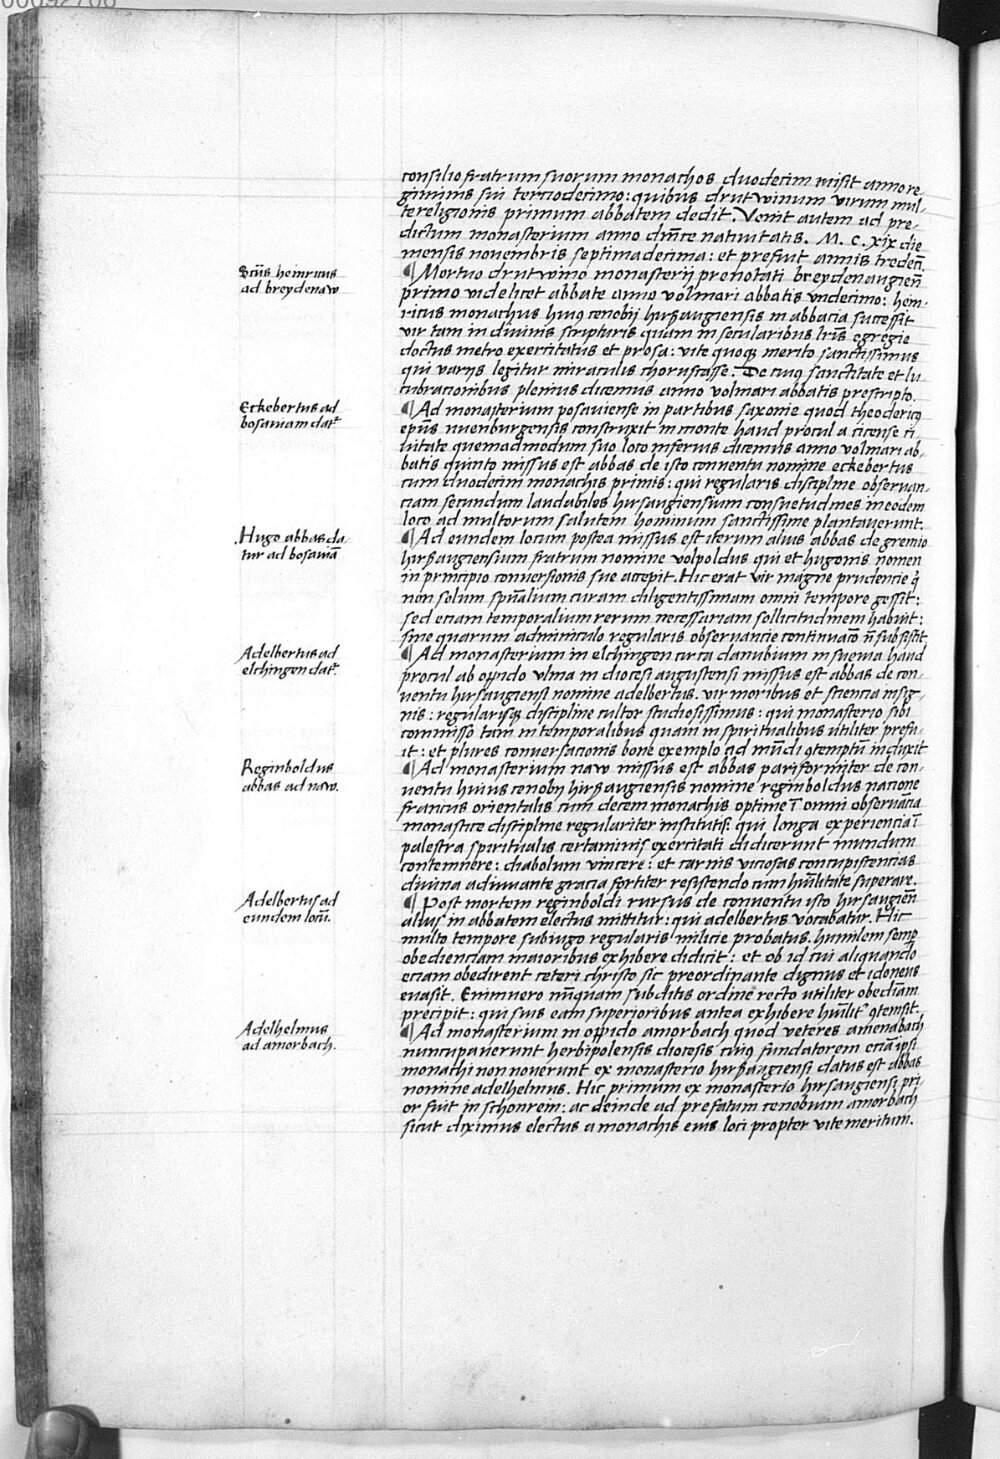 00092706
consilio fratrum suorum monachos duodecim misit anno re-
giminis sui terciodecimo: quibus drutwinum virum mul-
te religionis primum abbatem dedit. Venit autem ad pre-
dictum monasterium anno dnice natiuitatis. M. c. xix die
mensis novembris septima decima: et prefuit annis tredeci.
Scus heinricus
ad breydenaw
¶ Mortuo drutwino monasterij prenotati breydenaugien
primo videlicet abbate anno volmari abbatis vndecimo: hein-
ricus monachus huius cenobij hirsaugiensis in abbacia successit
vir tam in diuinis scripturis quam in secularibus lris egregie
doctus metro exercitatus et prosa: vite quoque merito sanctissimus
qui varijs legitur miraculis choruscasse. De cuius sanctitate et lu-
cubracionibus plenius dicemus anno volmari abbatis prescripto.
Eckebertus ad
bosawiam dat
¶ Ad monasterium posauiense in partibus saxonie quod theodericus
epus nuenburgensis construxit in monte haud procul a cicense ci-
uitate quemadmodum suo loco inferius dicemus anno volmari ab-
batis quinto missus est abbas de isto conuentu nomine eckebertus
cum duodecim monachis primis: qui regularis discipline obseruan-
ciam secundum laudabiles hirsaugiensium consuetudines in eodem
loco ad multorum salutem hominum sanctissime plantauerunt.
Hugo abbas da
tur ad bosawia
¶ Ad eundem locum postea missus est iterum alius abbas de gremio
hirsaugiensium fratrum nomine volpoldus qui et hugonis nomen
in principio conuersionis sue accepit. Hic erat vir magne prudencie q
non solum spualium curam diligentissimam omni tempore gessit:
sed eciam temporalium rerum necessariam sollicitudinem habuit:
sine quarum adminiculo regularis obseruancie continuaco n subsistit
Adelbertus ad
elchingen dat
¶ Ad monasterium in elchingen circa danubium in sueuia haud
procul ab oppido vlma in diocesi augustensi missus est abbas de con-
uentu hirsaugiensi nomine adelbertus. vir moribus et sciencia insig-
nis: regularisque discipline cultor studiosissimus: qui monasterio sibi
commisso tam in temporalibus quam in spiritualibus vtiliter prefu-
it: et plures conuersacionis bone exemplo ad mundi gtemptu induxit
Reginboldus
abbas ad naw.
¶ Ad monasterium naw missus est abbas pariformiter de con-
uentu huius cenobij hirsaugiensis nomine reginboldus nacione
francus orientalis cum decem monachis optime i omni obseruacia
monastice discipline regulariter institutis: qui longa experiencia i
palestra spiritualis certaminis exercitati didicerunt mundum
contemnere: diabolum vincere: et carnis viciosas concupiscencias
diuina adiuuante gracia fortiter resistendo cum huilitate superare.
Adelbertus ad
eundem locu.
¶ Post mortem reginboldi rursus de conuentu isto hirsaugien
alius in abbatem electus mittitur: qui adelbertus vocabatur. Hic
multo tempore sub iugo regularis milicie probatus. humilem semp
obedienciam maioribus exhibere didicit: et ob id cui aliquando
eciam obedirent ceteri christo sic preordinante dignus et idoneus
euasit. Enimuero nuquam subditis ordine recto vtiliter obediam
precipit: qui suis eam superioribus antea exhibere huilit gtemsit.
Adelhelmus
ad amorbach.
¶ Ad monasterium in oppido amorbach quod veteres amenabach
nuncupauerunt herbipolensis diocesis cuius fundatorem ecia ipsi
monachi non nouerunt ex monasterio hirsaugiensi datus est abbas
nomine adelhelmus. Hic primum ex monasterio hirsaugiensi pri-
or fuit in schonrein: ac deinde ad prefatum cenobium amorbach
sicut diximus electus a monachis eius loci propter vite meritum.